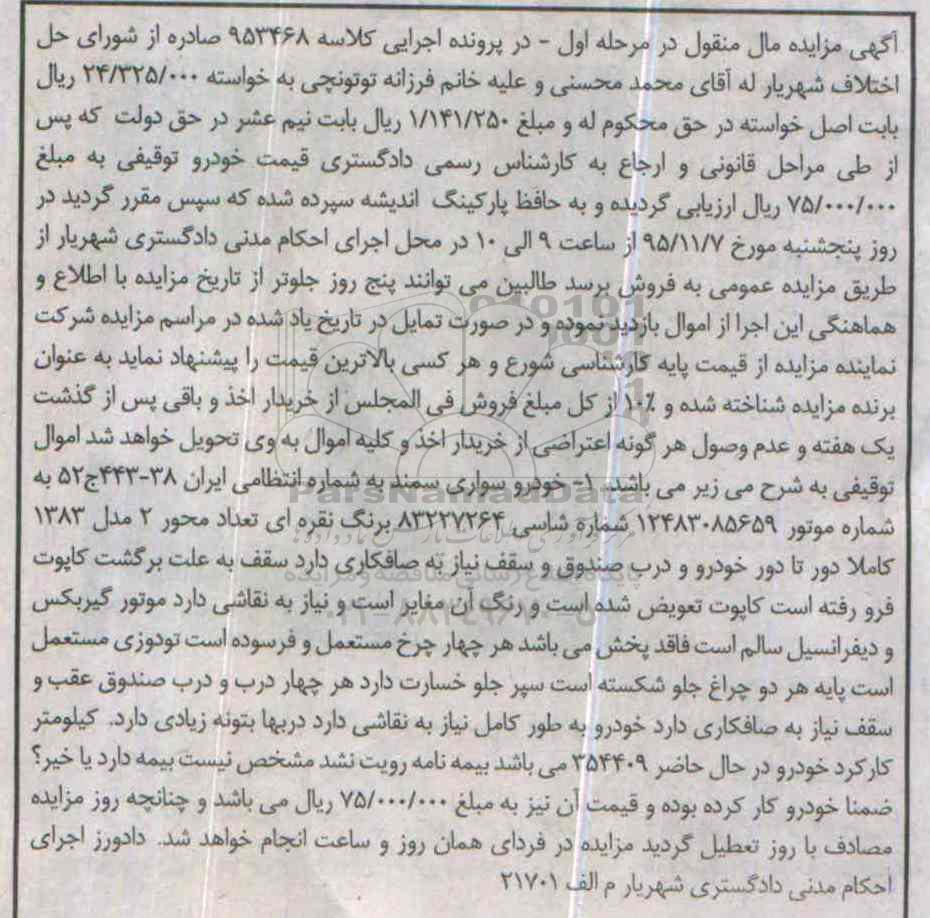 آگهی مزایده مال منقول در مرحله اول - در پرونده اجرایی کلاسه ۹۵۳۴۶۸ صادره از شورای حل
اختلاف شهریار له آقای محمد محسنی و علیه خانم فرزانه توتونچی به خواسته ۲۴/۳۲۵/۰۰۰ ریال
بابت اصل خواسته در حق محکوم له و مبلغ ۱/۱۴۱/۲۵۰ ریال بابت نیم عشر در حق دولت که پس
از طی مراحل قانونی و ارجاع به کارشناس رسمی دادگستری قیمت خودرو توقیفی به مبلغ
۷۵/۰۰۰/۰۰۰ ریال ارزیابی گردیده و به حافظ پارکینگ اندیشه سپرده شده که سپس مقرر گردید در
روز پنجشنبه مورخ ۹۵/۱۱/۷ از ساعت ۹ الی ۱۰ در محل اجرای احکام مدنی دادگستری شهریار از
طریق مزایده عمومی به فروش برسد طالبین می توانند پنج روز جلوتر از تاریخ مزایده با اطلاع و
هماهنگی این اجرا از اموال بازدید نموده و در صورت تمایل در تاریخ یاد شده در مراسم مزایده شرکت
نماینده مزایده از قیمت پایه کارشناسی شورع و هر کسی بالاترین قیمت را پیشنهاد نماید به عنوان
برنده مزایده شناخته شده و ۱۰٪ از کل مبلغ فروش فی المجلس از خریدار اخذ و باقی پس از گذشت
یک هفته و عدم وصول هر گونه اعتراضی از خریدار اخذ و کلیه اموال به وی تحویل خواهد شد اموال
توقیفی به شرح می زیر می باشد. ۱- خودرو سواری سمند به شماره انتظامی ایران ۳۸-۴۴۳ج۵۲ به
شماره موتور ۱۲۴۸۳۰۸۵۶۵۹ شماره شاسی ۸۳۲۲۷۲۶۴ برنگ نقره ای تعداد محور ۲ مدل ۱۳۸۳
کاملا دور تا دور خودرو و درب صندوق و سقف نیاز به صافکاری دارد سقف به علت برگشت کاپوت
فرو رفته است کاپوت تعویض شده است و رنگ آن مغایر است و نیاز به نقاشی دارد موتور گیربکس
و دیفرانسیل سالم است فاقد پخش می باشد هر چهار چرخ مستعمل و فرسوده است تودوزی مستعمل
است پایه هر دو چراغ جلو شکسته است سپر جلو خسارت دارد هر چهار درب و درب صندوق عقب و
سقف نیاز به صافکاری دارد خودرو به طور کامل نیاز به نقاشی دارد دربها بتونه زیادی دارد. کیلومتر
کارکرد خودرو در حال حاضر ۳۵۴۴۰۹ می باشد بیمه نامه رویت نشد مشخص نیست بیمه دارد یا خیر؟
ضمنا خودرو کار کرده بوده و قیمت آن نیز به مبلغ ۷۵/۰۰۰/۰۰۰ ریال می باشد و چنانچه روز مزایده
مصادف با روز تعطیل گردید مزایده در فردای همان روز و ساعت انجام خواهد شد. دادورز اجرای
احکام مدنی دادگستری شهریار م الف ۲۱۷۰۱
ParsNamadData
پایگاه اطلاع رسانی مناقصه و مزایده